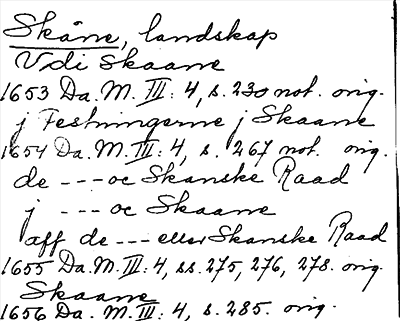 Skåne, landskap
Udi Skaane
1653 Da. M. III: 4, s. 230 not. orig.
j Festningerne j Skaane
1654 Da. M. III: 4, s. 267 not. orig.
de --- oc Skanske Raad
j --- oc Skaane
aff de --- eller Skanske Raad
1655 Da. M. III: 4, ss. 275, 276, 278. orig.
Skaane
1656 Da. M. III: 4, s. 285. orig.